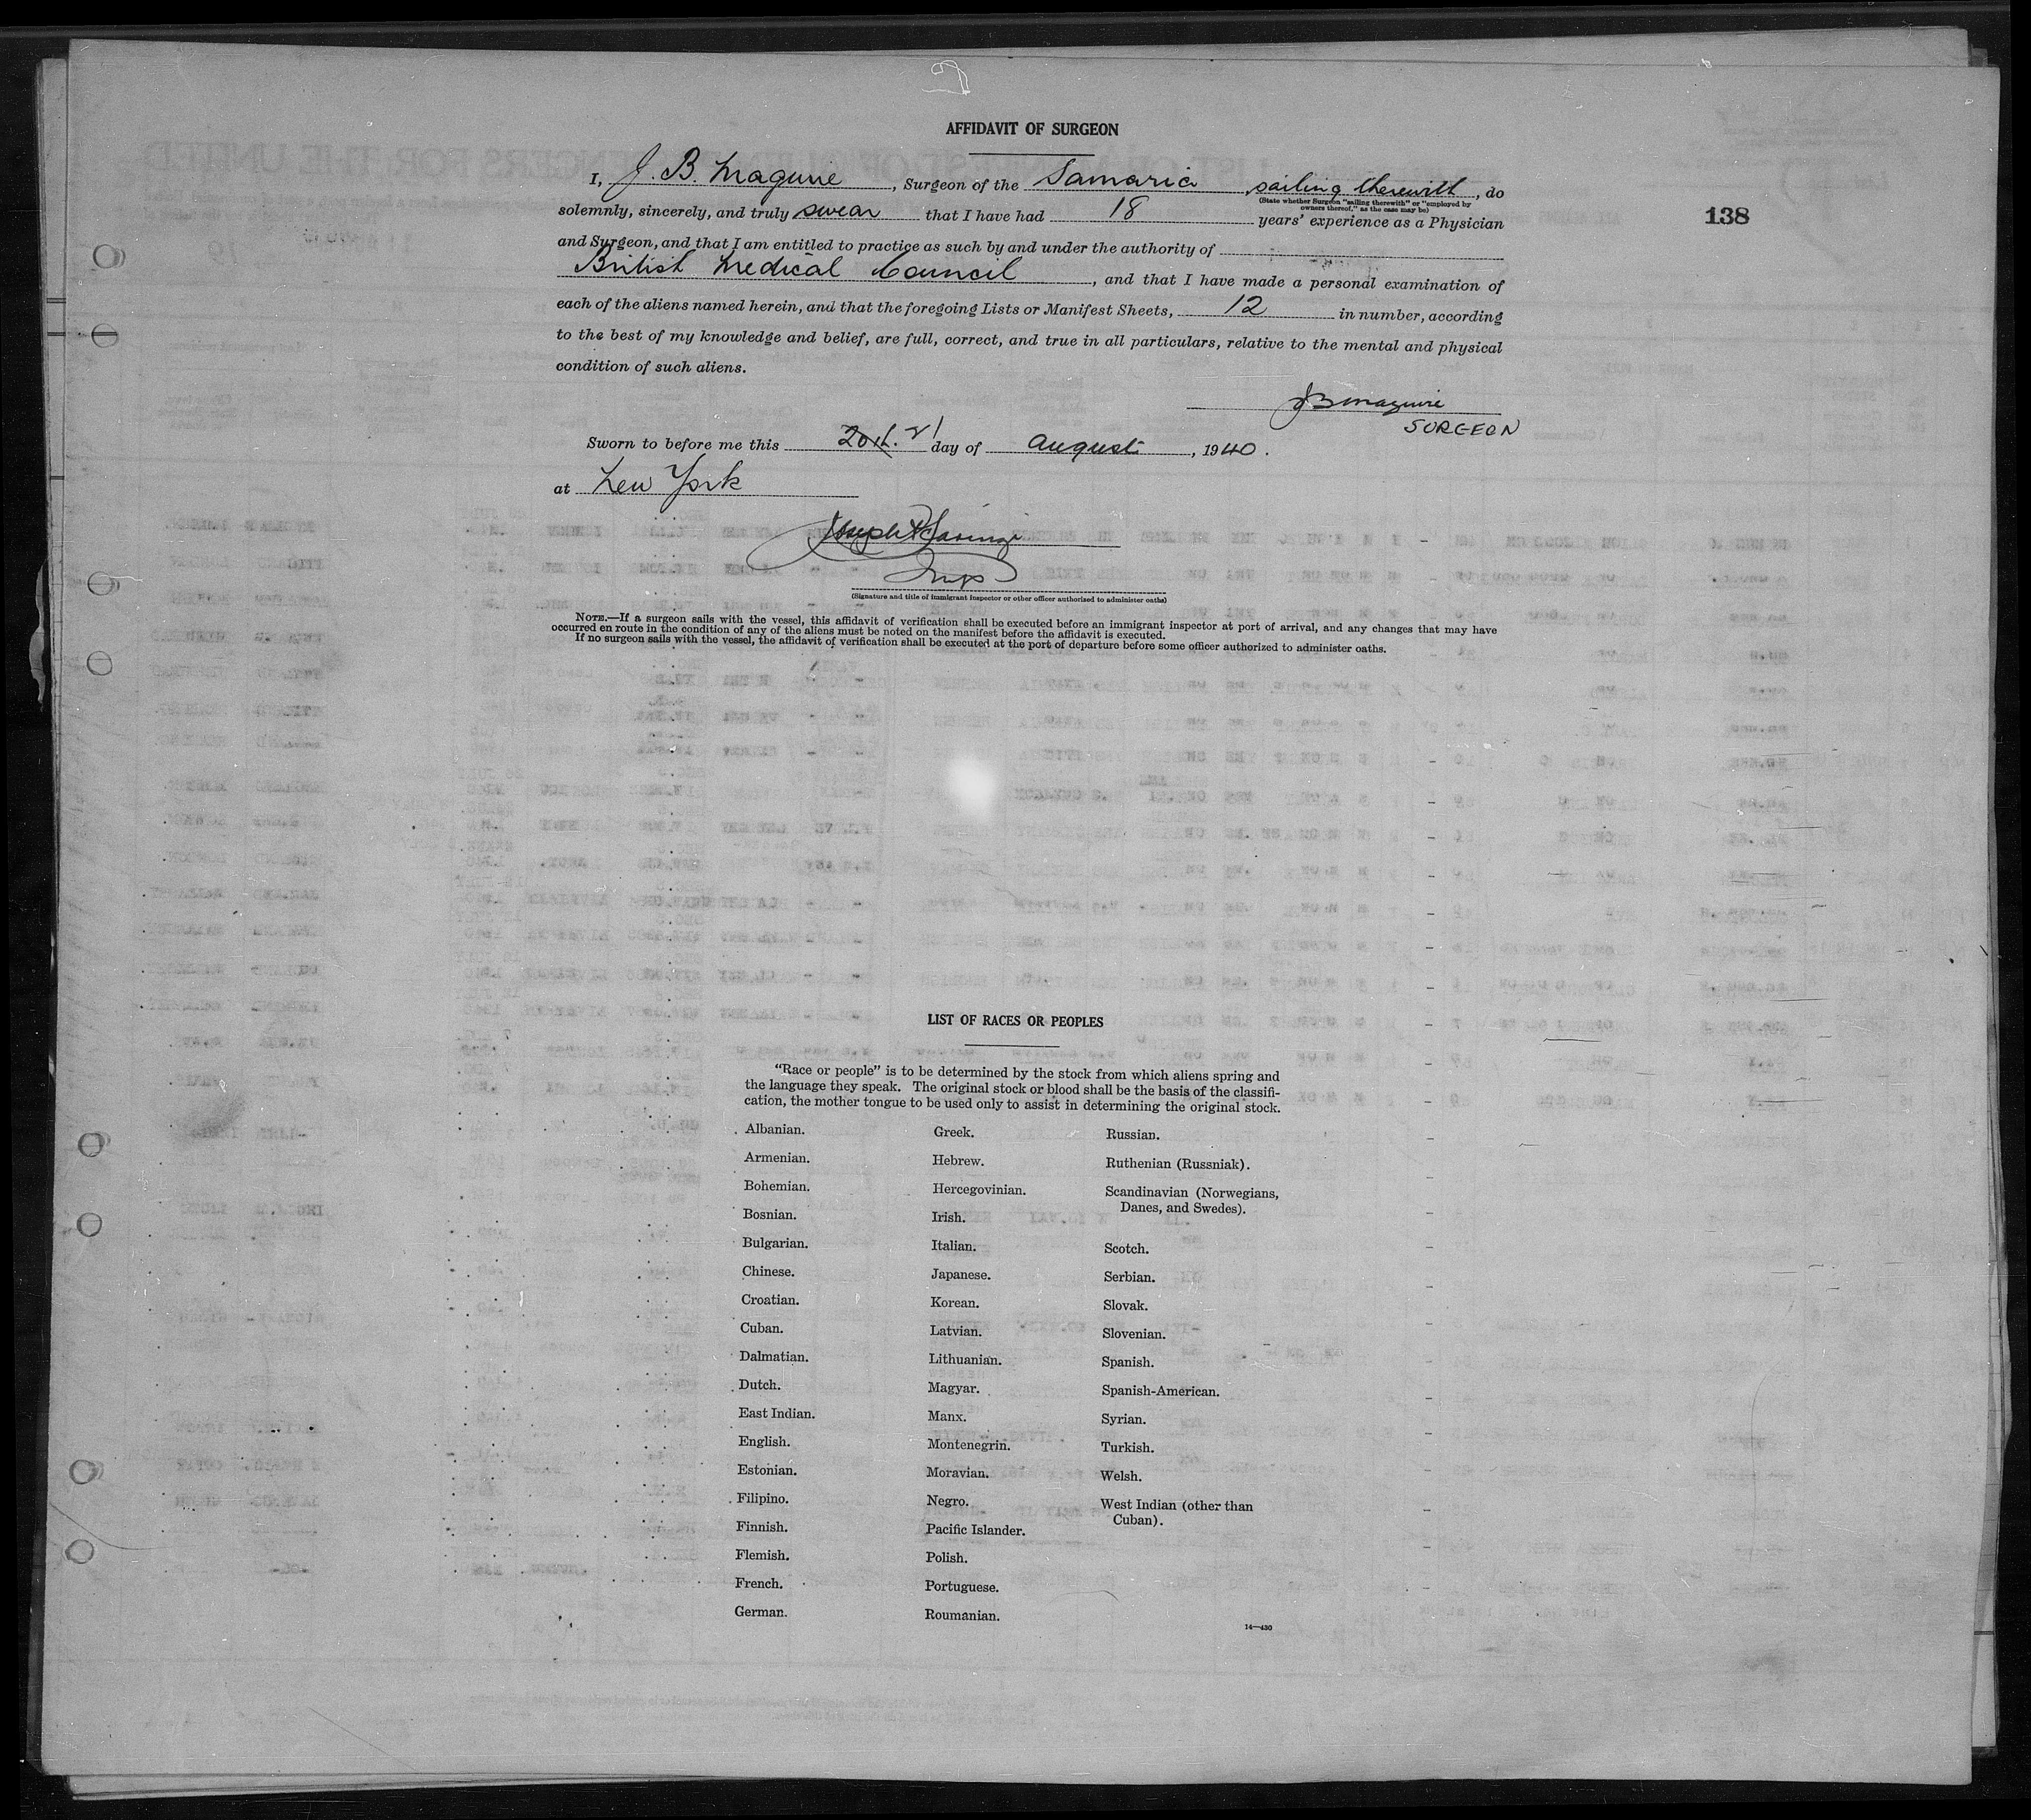 AFFIDAVIT OF SURGEON
I, J. B. Maguire, Surgeon of the Samaria, sailing therewith, do
(State whether Surgeon "sailing therewith" or "employed by
owners thereof," as the case may be)
solemnly, sincerely, and truly swear that I have had 18 years' experience as a Physician
138
and Surgeon, and that I am entitled to practice as such by and under the authority of
British Medical Council, and that I have made a personal examination of
each of the aliens named herein, and that the foregoing Lists or Manifest Sheets, 12 in number, according
to the best of my knowledge and belief, are full, correct, and true in all particulars, relative to the mental and physical
condition of such aliens.
JB Maguire
SURGEON
Sworn to before me this 20th. 21 day of August, 1940.
at New York
Joseph
Insp
(Signature and title of immigrant inspector or other officer authorized to administer oaths)
NOTE.—If a surgeon sails with the vessel, this affidavit of verification shall be executed before an immigrant inspector at port of arrival, and any changes that may have
occurred en route in the condition of any of the aliens must be noted on the manifest before the affidavit is executed.
If no surgeon sails with the vessel, the affidavit of verification shall be executed at the port of departure before some officer authorized to administer oaths.
LIST OF RACES OR PEOPLES
"Race or people" is to be determined by the stock from which aliens spring and
the language they speak. The original stock or blood shall be the basis of the classifi-
cation, the mother tongue to be used only to assist in determining the original stock.
Albanian.
Armenian.
Bohemian.
Bosnian.
Bulgarian.
Chinese.
Croatian.
Cuban.
Dalmatian.
Dutch.
East Indian.
English.
Estonian.
Filipino.
Finnish.
Flemish.
French.
German.
Greek.
Hebrew.
Hercegovinian.
Irish.
Italian.
Japanese.
Korean.
Latvian.
Lithuanian.
Magyar.
Manx.
Montenegrin.
Moravian.
Negro.
Pacific Islander.
Polish.
Portuguese.
Roumanian.
Russian.
Ruthenian (Russniak).
Scandinavian (Norwegians,
Danes, and Swedes).
Scotch.
Serbian.
Slovak.
Slovenian.
Spanish.
Spanish-American.
Syrian.
Turkish.
Welsh.
West Indian (other than
Cuban).
14—430